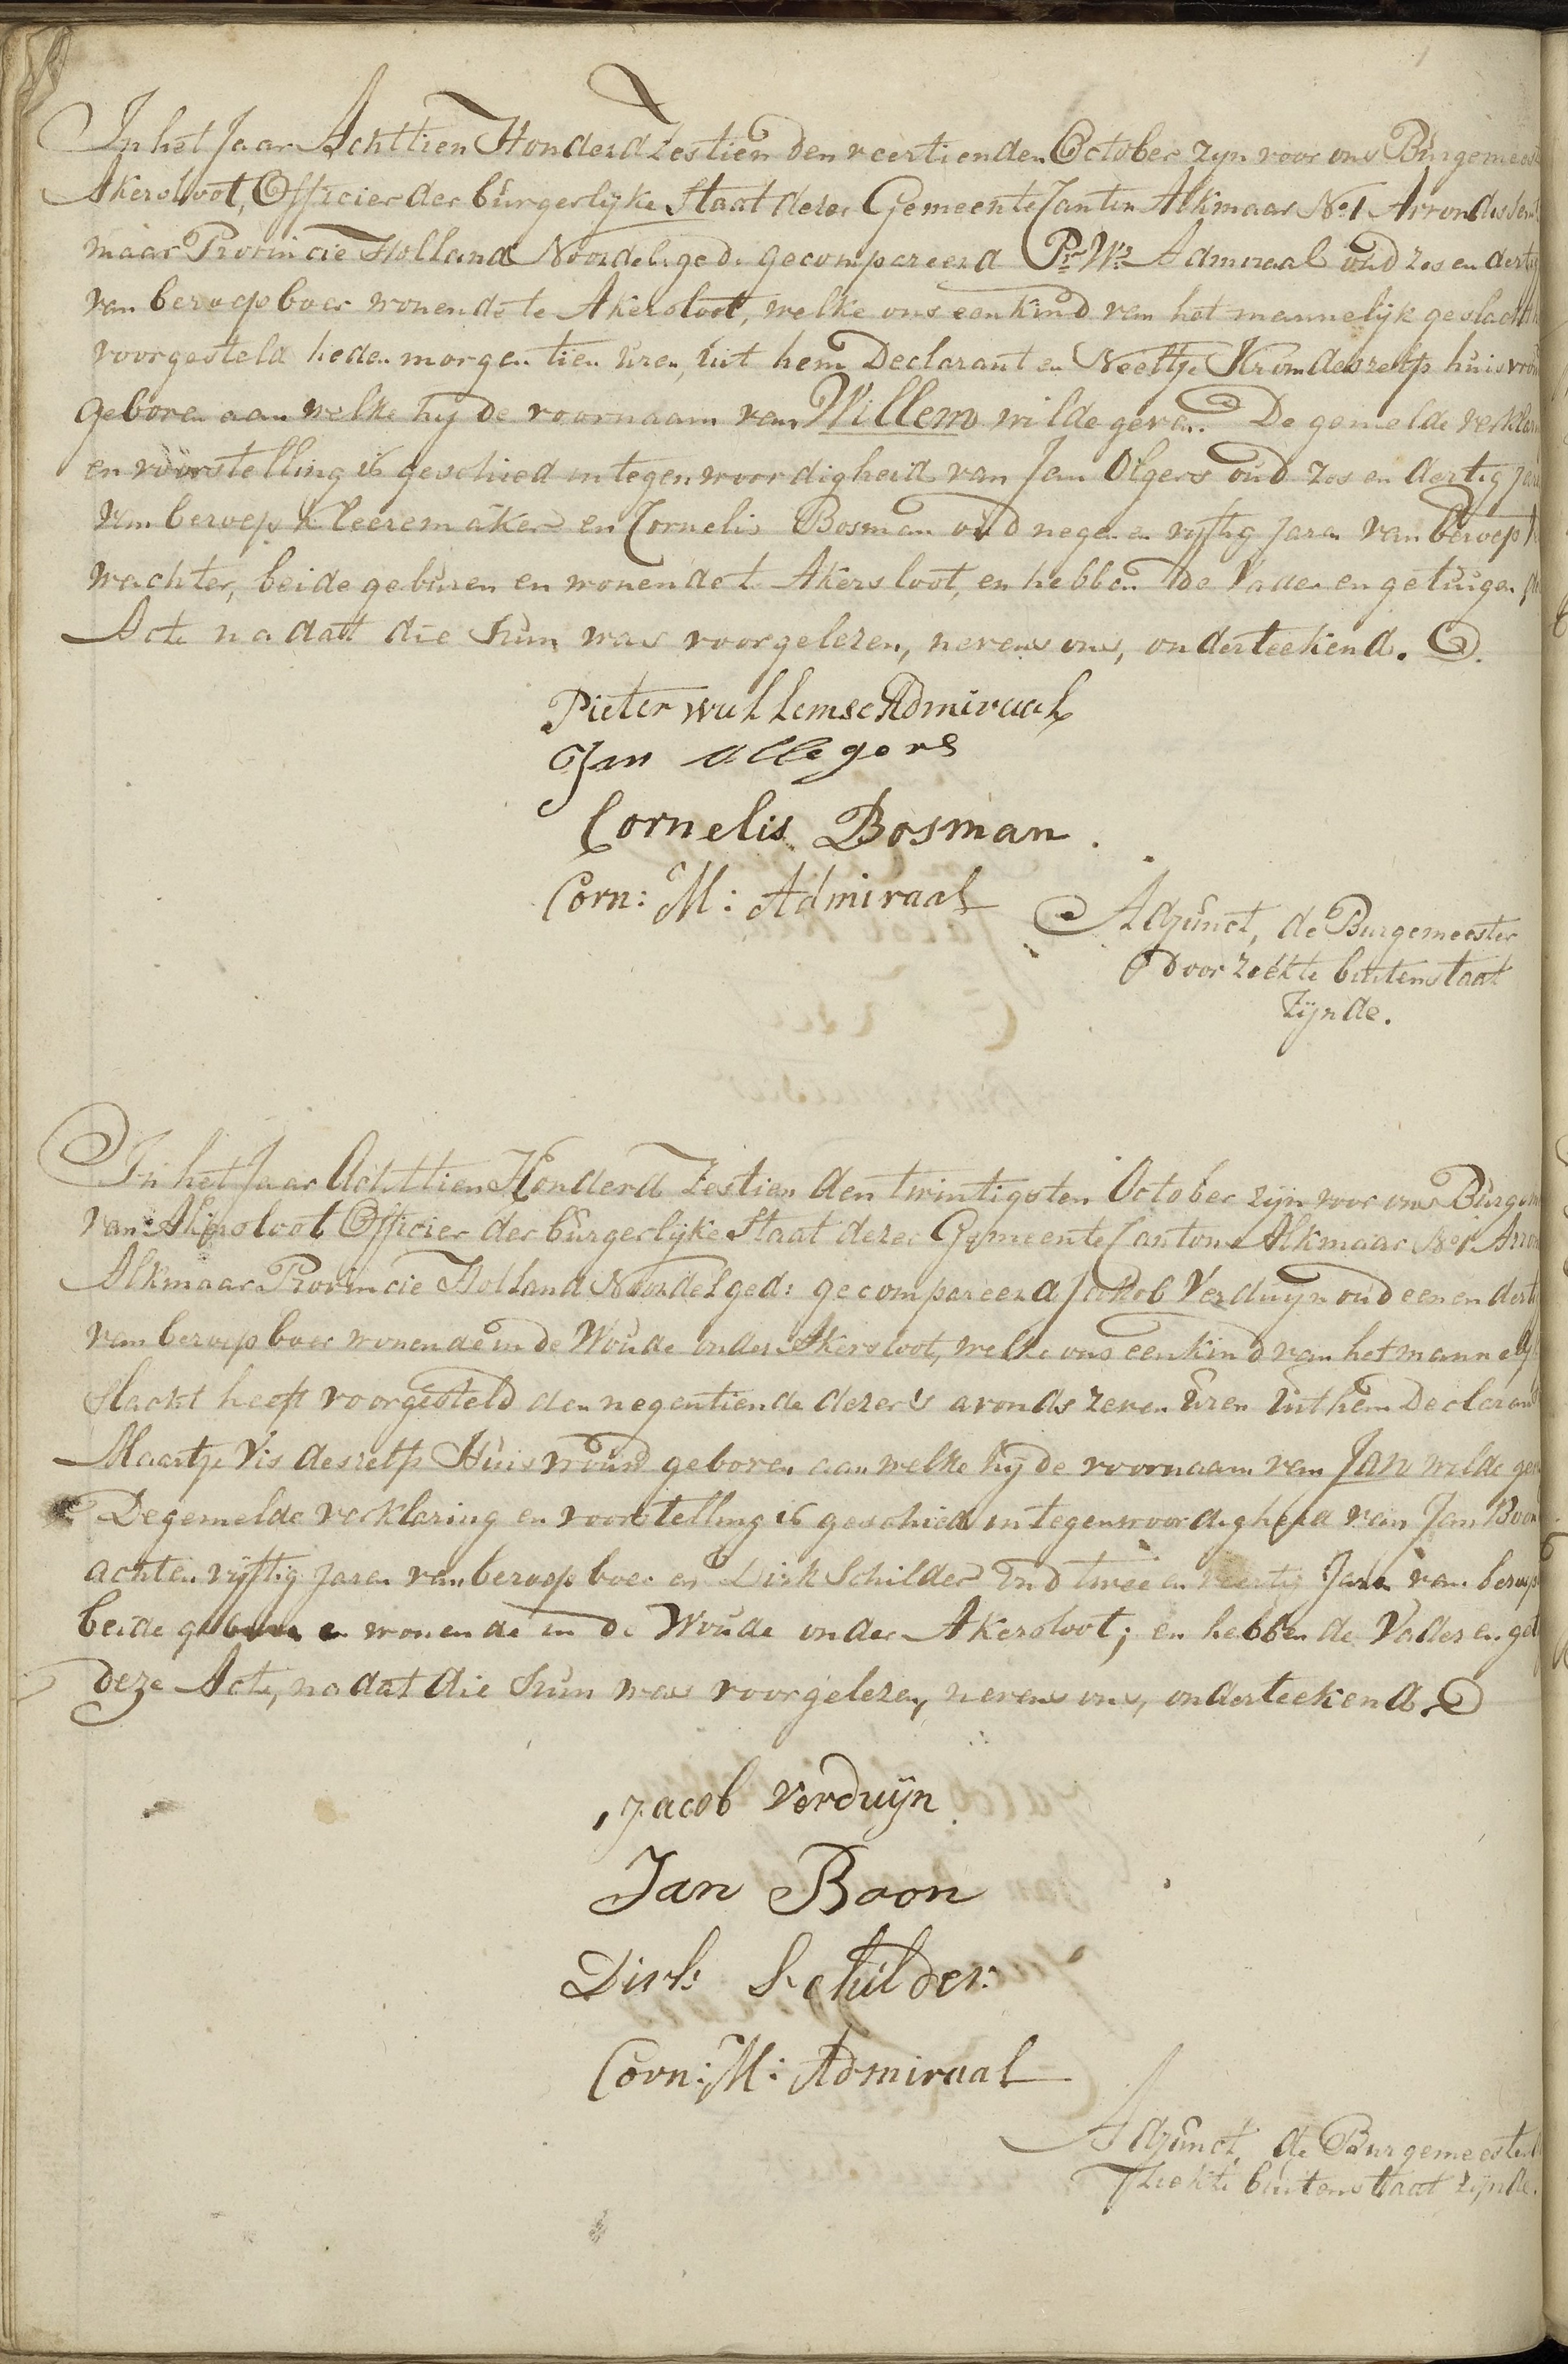 In het Jaar Achttien Honderd Zestien den veertienden October zyn voor ons Burgemeest
Akersloot, Officier der burgerlyke Staat dezer Gemeente Canton Alkmaar No 1 Arrondissem
maar Provincie Holland Noordel: ged: gecompareerd Pr Wz Admiraal oud zes en dertig
van beroep boer wonende te Akersloot, welke ons een kind van het mannelyk geslacht
voorgesteld heden morgen tien uren, uit hem Declarant en Neeltje Krom deszelfs huisvrou
geboren aan welke hy de voornaam van Willem wilde geven. De gemelde verklar
en voorstelling is geschied in tegenwoordigheid van Jan Olgers oud zes en dertig jar
van beroep Kleeremaker en Cornelis Bosman oud negen en vyftig jaren van beroep
wachter, beide geburen en wonende te Akersloot, en hebben de Vader en getuigen
Acte na dat die hun was voorgelezen, nevens ons, onderteekend.
Pieter willemse Admiraal
Jan allegers
Cornelis Bosman.
Corn: M: Admiraal
Adjunct, de Burgemeester
door ziekte buiten staat
zijnde.
In het Jaar Achttien Honderd Zestien den twintigsten October zijn voor ons Burgem
van Akersloot Officier der burgerlyke Staat dezer Gemeente Canton Alkmaar No 1 Arron
Alkmaar Provincie Holland Noordel ged: gecompareerd Jakob Verduyn oud een en dert
van beroep boer wonende in de Woude onder Akersloot, welke ons een kind van het mannely
slacht heeft voorgesteld den negentiende dezer 's avonds zeven uren uit hem Declarant
Maartje Vis deszelfs Huisvrouw geboren aan welke hij de voornaam van Jan wilde gev
De gemelde verklaring en voorstelling is geschied in tegenwoordigheid van Jan Boon
acht en vyftig jaren van beroep boer en Dirk Schilder oud twee en veertig Jaren van beroep
beide geburen en wonende in de Woude onder Akersloot; en hebben de Vader en get
deze Acte, na dat die hun was voorgelezen, nevens ons, onderteekend.
Jacob Verduijn
Jan Boon
Dirk Schilder
Corn: M: Admiraal
Adjunct, de Burgemeester
Ziekte buiten staat zijnde.